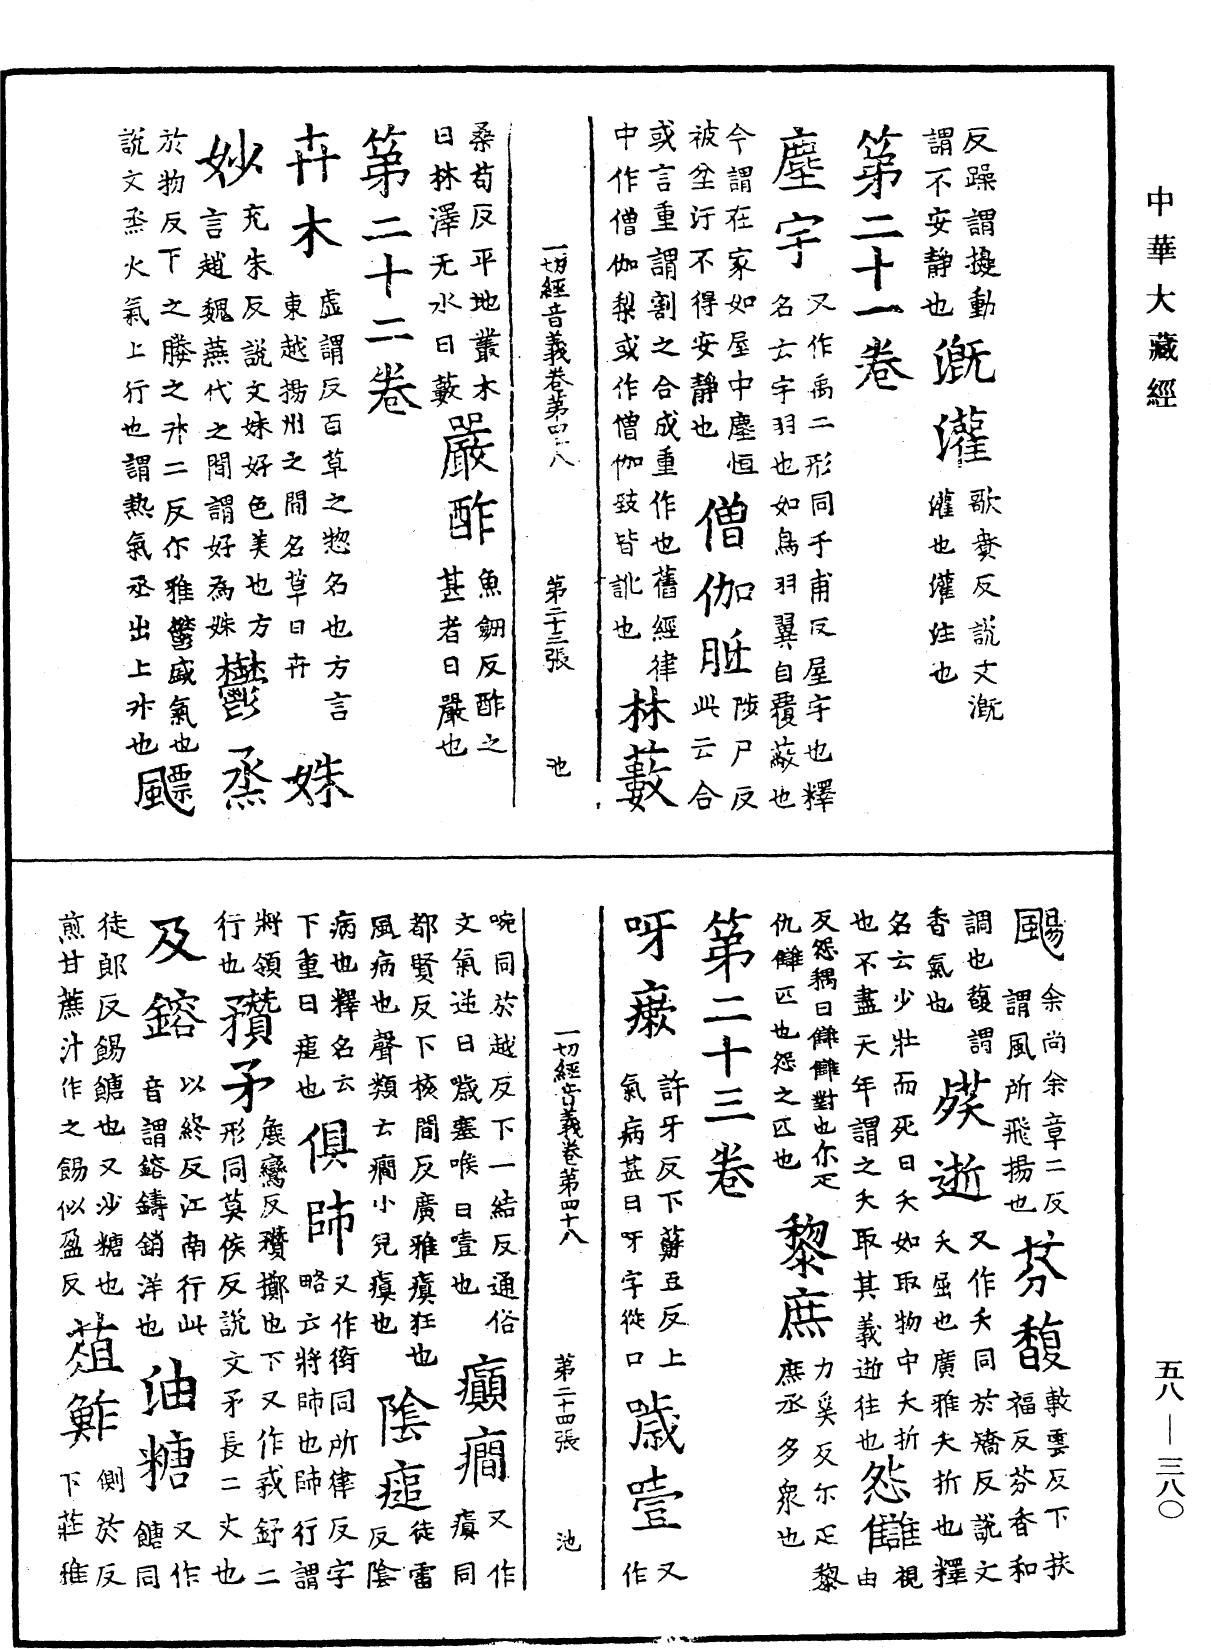 中華大藏經
反躁謂擾動
謂不安靜也 溉灌 歌賚反說文溉
灌也灌注也
第二十一卷
塵宇 又作㝢二形同于甫反屋宇也釋
名云宇羽也如鳥羽翼自覆蔽也
今謂在家如屋中塵恒
被坌汙不得安靜也 僧伽胝 陟尸反
此云合
或言重謂割之合成重作也舊經律
中作僧伽梨或作僧伽致皆訛也 林藪
一切經音義卷第四十八 第二十三張 池
桑苟反平地叢木
曰林澤无水曰藪 嚴酢 魚劒反酢之
甚者曰嚴也
第二十二卷
卉木 虛謂反百草之惣名也方言
東越揚州之間名草曰卉 姝
妙 充朱反說文姝好色美也方
言趙魏燕代之間謂好為姝 鬱烝
於物反下之媵之升二反尔雅鬱盛氣也
說文烝火氣上行也謂熱氣烝出上升也 飄
颺 余尚余章二反
謂風所飛揚也 芬馥 敷雲反下扶
福反芬香和
調也馥謂
香氣也 殀逝 又作夭同於矯反說文
夭屈也廣雅夭折也釋
名云少壯而死曰夭如取物中夭折
也不盡天年謂之夭取其義逝往也 怨讎 視由
反怨耦曰讎讎對也尔疋
仇讎匹也怨之匹也 黎庶 力奚反尔疋黎
庶烝多衆也
第二十三卷
呀瘶 許牙反下蘇豆反上
氣病甚曰呀字從口 噦噎 又作
啘同於越反下一結反通俗
文氣逆曰噦塞喉曰噎也 癲癇 又作瘨同
都賢反下核間反廣雅瘨狂也
風病也聲類云癇小兒瘨也 陰㿗 徒雷反陰
病也釋名云
下重曰㿗也 俱帥 又作衛同所律反字
略云將帥也帥行謂
將領
行也 穳矛 麁鸞反穳擲也下又作㦵鉾二
形同莫侯反說文矛長二丈也
及鎔 以終反江南行此
音謂鎔鑄銷洋也 油糖 又作餹同
徒郎反餳餹也又沙糖也
煎甘蔗汁作之餳似盈反 葅鮓 側於反
下莊雅
一切經音義卷第四十八 第二十四張 池
五八—三八〇